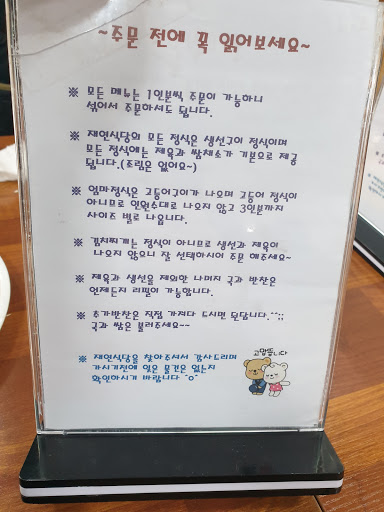 ~주문 전에 꼭 읽어보세요~
※ 모든 메뉴는 1인분씩 주문이 가능하니
섞어서 주문하셔도 됩니다.
※ 재연식당의 모든 정식은 생선구이 정식이며
모든 정식에는 제육과 쌈채소가 기본으로 제공
됩니다.(조림은 없어요~)
※ 엄마정식은 고등어구이가 나오며 고등어 정식이
아니므로 인원수대로 나오지 않고 3인분까지
사이즈 별로 나옵니다.
※ 김치찌개는 정식이 아니므로 생선과 제육이
나오지 않으니 잘 선택하시어 주문 해주세요~
※ 제육과 생선을 제외한 나머지 국과 반찬은
언제든지 리필이 가능합니다.
※ 추가반찬은 직접 가져다 드시면 된답니다.^^;;
국과 쌈은 불러주세요~~
※ 재연식당을 찾아주셔서 감사드리며
가시기전에 잊은 물건은 없는지
확인하시기 바랍니다 ^o^
고맙습니다